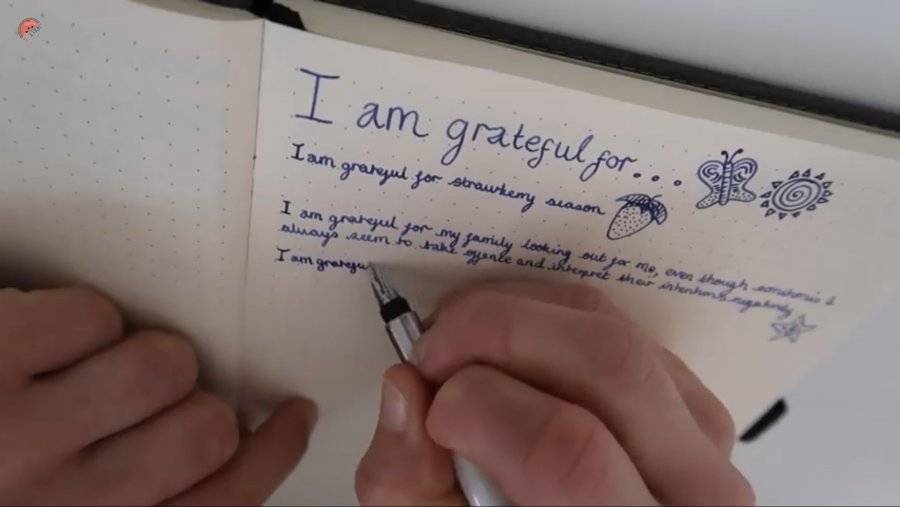 I am grateful for...
I am grateful for strawberry season
I am grateful for my family looking out for me, even though sometimes I
always seem to take offence and interpret their intentions negatively
I am gratefu